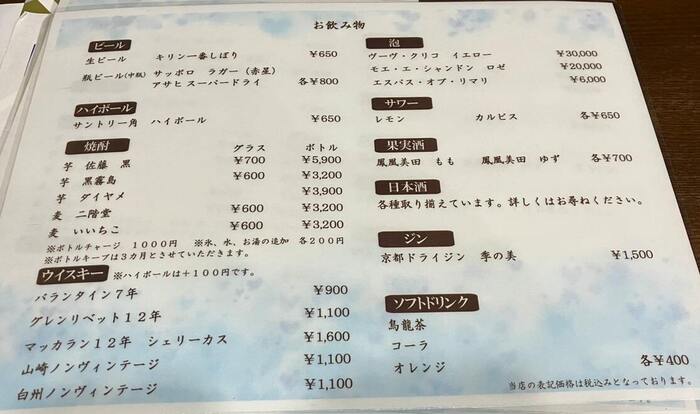 お飲み物
ビール
生ビール キリン一番しぼり ¥650
瓶ビール(中瓶) サッポロ ラガー (赤星)
アサヒ スーパードライ 各¥800
ハイボール
サントリー角 ハイボール ¥650
焼酎 グラス ボトル
芋 佐藤 黒 ¥700 ¥5,900
芋 黒霧島 ¥600 ¥3,200
芋 ダイヤメ ¥3,900
麦 二階堂 ¥600 ¥3,200
麦 いいちこ ¥600 ¥3,200
※ボトルチャージ 1000円 ※氷、水、お湯の追加 各200円
※ボトルキープは3カ月とさせていただきます。
ウイスキー ※ハイボールは+100円です。
バランタイン7年 ¥900
グレンリベット12年 ¥1,100
マッカラン12年 シェリーカス ¥1,600
山崎ノンヴィンテージ ¥1,100
白州ノンヴィンテージ ¥1,100
泡
ヴーヴ・クリコ イエロー ¥30,000
モエ・エ・シャンドン ロゼ ¥20,000
エスパス・オブ・リマリ ¥6,000
サワー
レモン カルピス 各¥650
果実酒
鳳凰美田 もも 鳳凰美田 ゆず 各¥700
日本酒
各種取り揃えています。詳しくはお尋ねください。
ジン
京都ドライジン 季の美 ¥1,500
ソフトドリンク
烏龍茶
コーラ
オレンジ 各¥400
当店の表記価格は税込みとなっております。